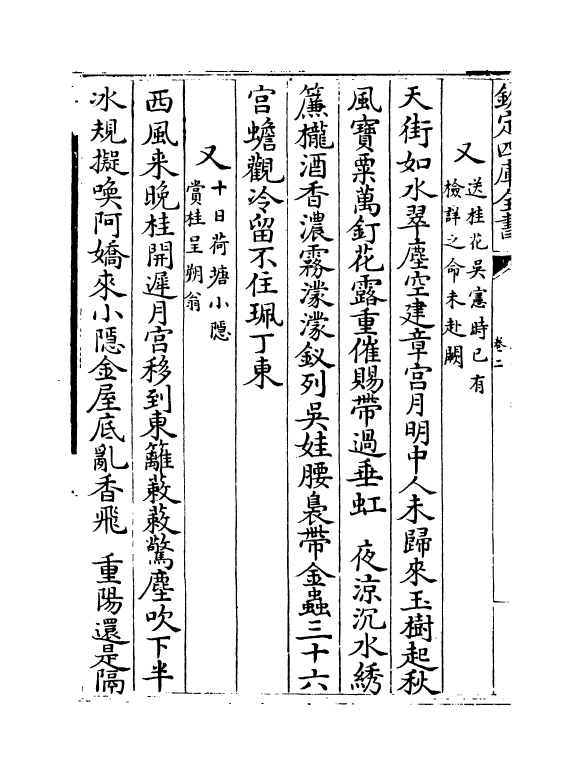 欽定四庫全書
卷二
又
送桂花吳憲時已有
檢詳之命未赴闕
天街如水翠塵空建章宮月明中人未歸來玉樹起秋
風寶粟萬釘花露重催賜帶過垂虹 夜涼沉水綉
簾櫳酒香濃霧濛濛釵列吳娃腰褭帶金蟲三十六
宮蟾觀冷留不住珮丁東
又
十日荷塘小隱
賞桂呈朔翁
西風来晚桂開遲月宮移到東籬蔌蔌驚塵吹下半
冰規擬喚阿嬌來小隱金屋底亂香飛 重陽還是隔